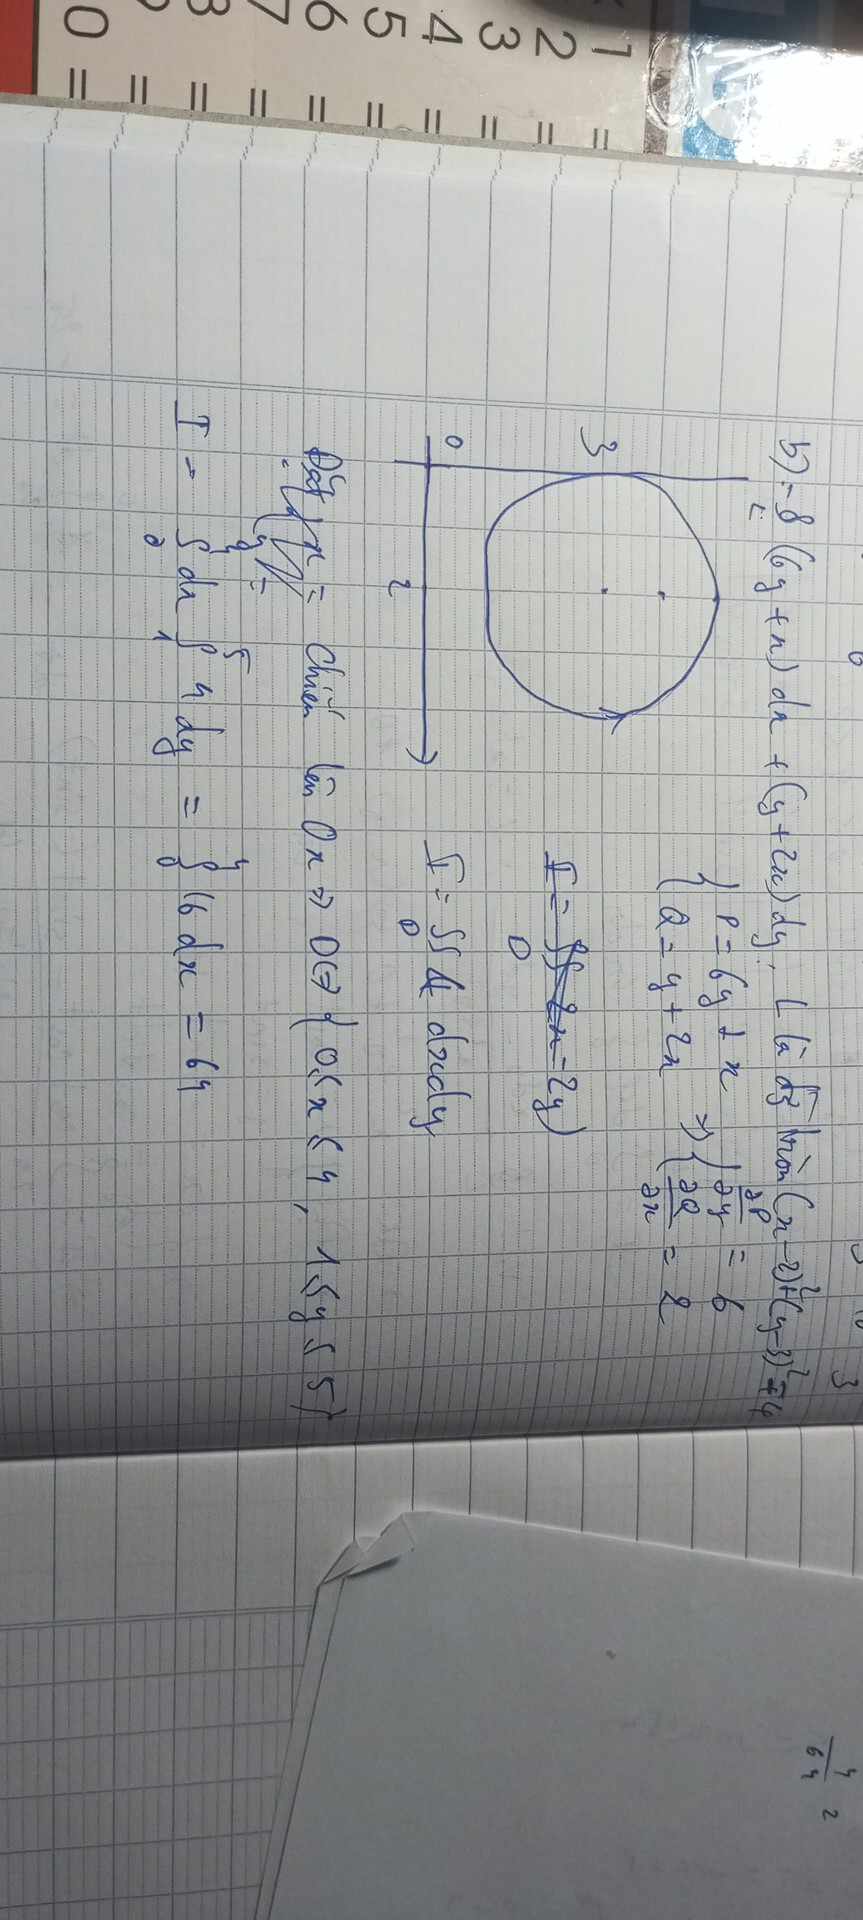 3
4/64 2
b) -∮_L (6y+x) dx + (y+2x) dy, L là đg tròn (x-2)²+(y-3)²=4
{ P = 6y + x
Q = y + 2x
⇒ { ∂P/∂y = 6
∂Q/∂x = 2
3
0
2
I = ∫∫_D 2x - 2y)
I = ∫∫_D 4 dxdy
Đặt { x = Chiếu lên Ox ⇒ D ⇔ { 0 ≤ x ≤ 4 , 1 ≤ y ≤ 5 }
y =
I = ∫_0^4 dx ∫_1^5 4 dy = ∫_0^4 16 dx = 64
1 =
2 =
3 =
4 =
5 =
6 =
7 =
3 =
=
0 =